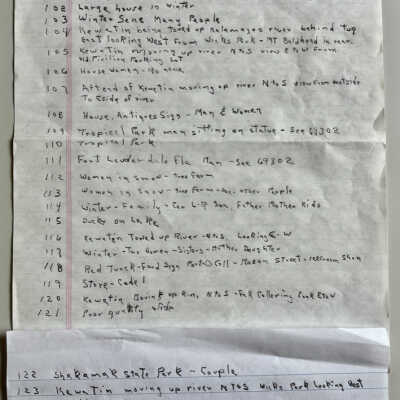 102 Large house in winter
103 Winter Sene Many People
104 Kewatin being towed up Kalamazoo river behind tug
East looking West From Wicks Park - Mt Baldhead in rear.
105 Kewatin moving up river NtoS view EtoW From
Parking Lot
106 House Women - No one
107 Aft end of Kewatin moving up river NtoS view From outside
To Eside of river
108 House, Antiques Sign - Man & Women
109 Tropical Park man sitting on statue - See 69302
110 Tropical Park
111 Fort Lauderdale Fla Man - See 69302
112 Women in snow - tree Farm
113 Women in snow - tree Farm - other People
114 Winter - Family - Son, Father Mother Kids
115 Ducks on Lake
116 Kewatin Towed up River - NtoS, Looking E-W
117 Winter - Two Women - Sisters - Mother Daughter
118 Red Truck - Ford Sign - Street -
119 Store - Code 1
120 Kewatin up River NtoS - EtoW
121 Poor quality slide
122 Shakamak State Park - Couple
123 Kewatin moving up river NtoS Wicks Park Looking West